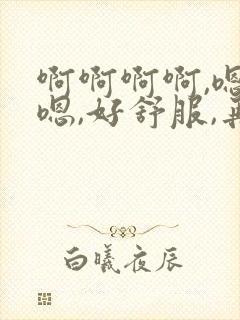 啊啊啊啊,嗯
嗯,好舒服,再
白曦夜辰